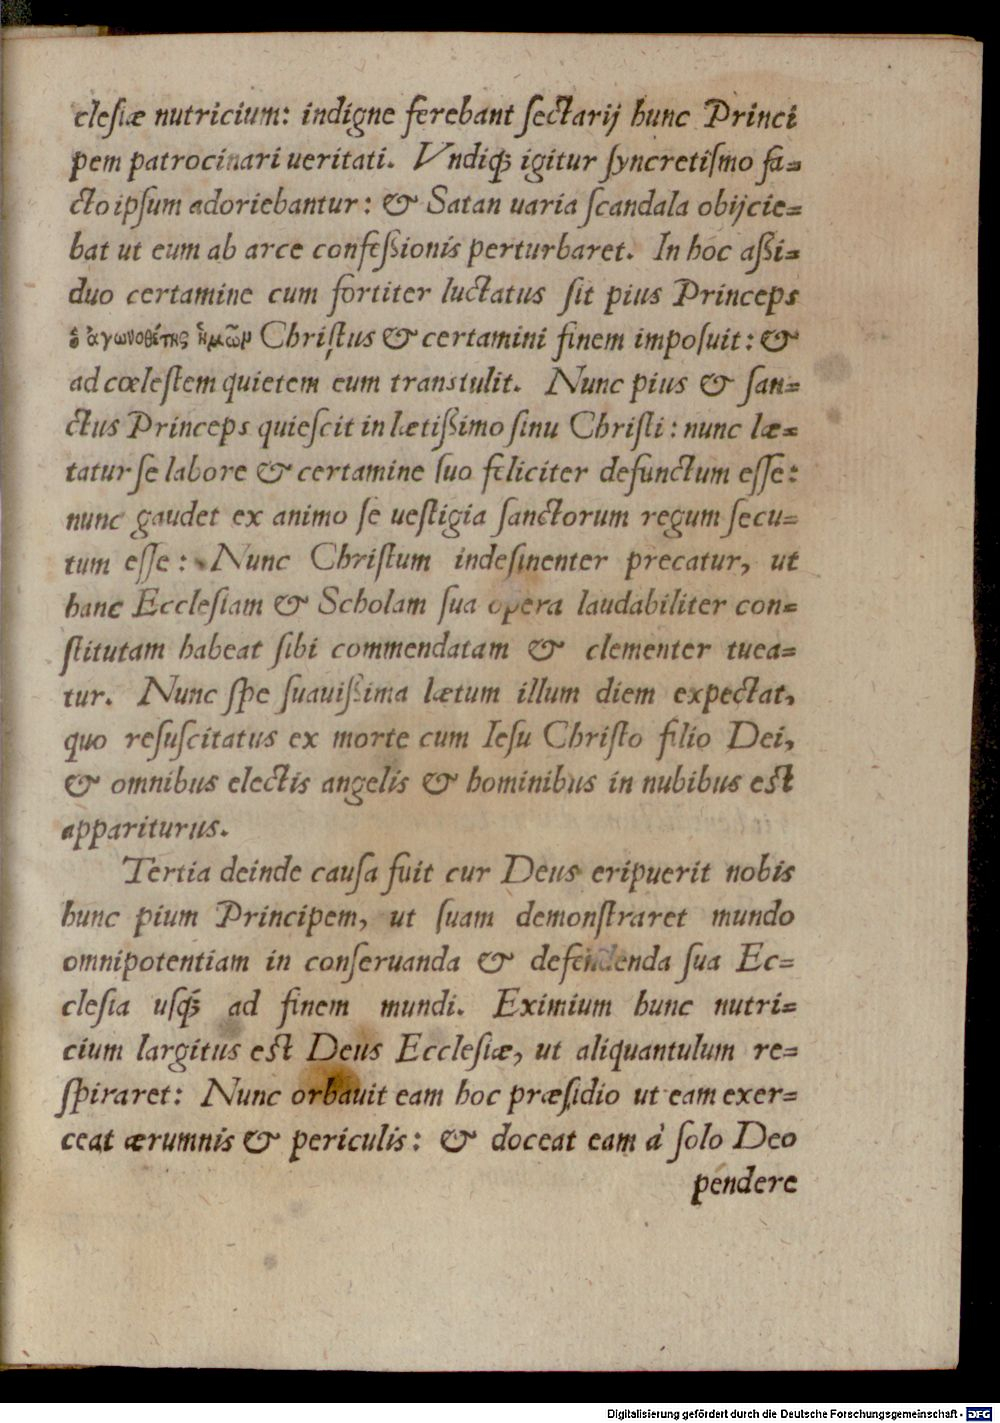 clesiæ nutricium: indigne ferebant sectarij hunc Princi
pem patrocinari ueritati. Vndiq; igitur syncretismo fa=
cto ipsum adoriebantur: & Satan uaria scandala obijcie=
bat ut eum ab arce confeßionis perturbaret. In hoc aßi=
duo certamine cum fortiter luctatus sit pius Princeps
ὁ ἀγωνοθέτης ἡμῶν Christus & certamini finem imposuit: &
ad cœlestem quietem eum transtulit. Nunc pius & san=
ctus Princeps quiescit in lætißimo sinu Christi: nunc læ=
tatur se labore & certamine suo feliciter defunctum esse:
nunc gaudet ex animo se uestigia sanctorum regum secu=
tum esse: Nunc Christum indesinenter precatur, ut
hanc Ecclesiam & Scholam sua opera laudabiliter con=
stitutam habeat sibi commendatam & clementer tuea=
tur. Nunc spe suauißima lætum illum diem expectat,
quo resuscitatus ex morte cum Iesu Christo filio Dei,
& omnibus electis angelis & hominibus in nubibus est
appariturus.
Tertia deinde causa fuit cur Deus eripuerit nobis
hunc pium Principem, ut suam demonstraret mundo
omnipotentiam in conseruanda & defendenda sua Ec=
clesia usq; ad finem mundi. Eximium hunc nutri=
cium largitus est Deus Ecclesiæ, ut aliquantulum re=
spiraret: Nunc orbauit eam hoc præsidio ut eam exer=
ceat ærumnis & periculis: & doceat eam à solo Deo
pendere
Digitalisierung gefördert durch die Deutsche Forschungsgemeinschaft - DFG